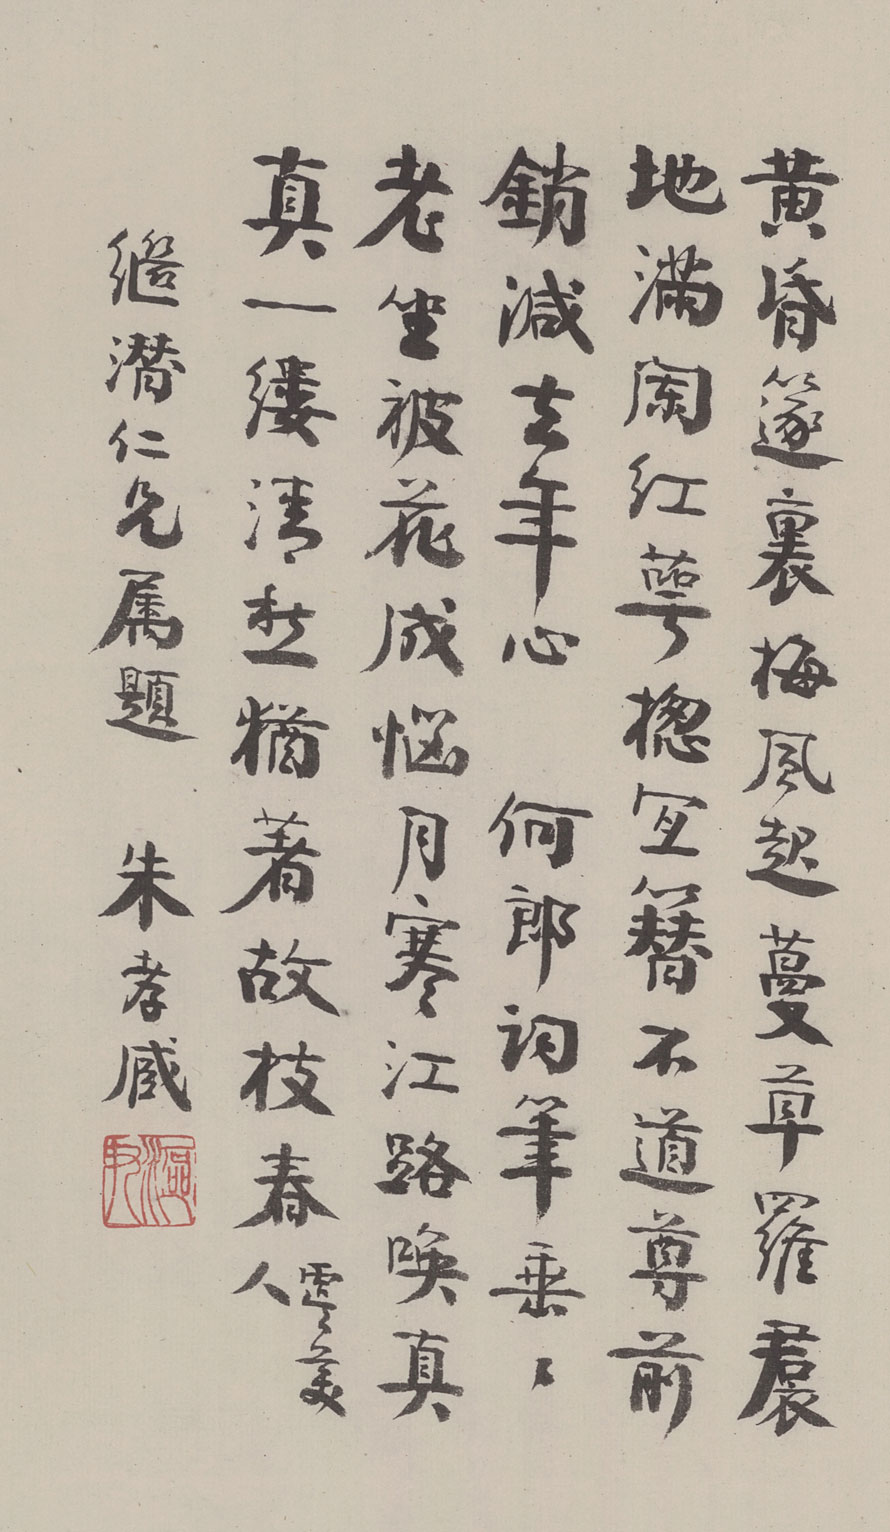 黄昏篴裏梅風起蔓草羅裠
地滿闌紅萼揔宐簪不道尊前
銷減去年心 何郎詞筆垂〻
老坐被花成惱月寒江路喚真
真一縷清愁猶著故枝春 虞美人
繼潛仁兄属題 朱孝臧
漚尹